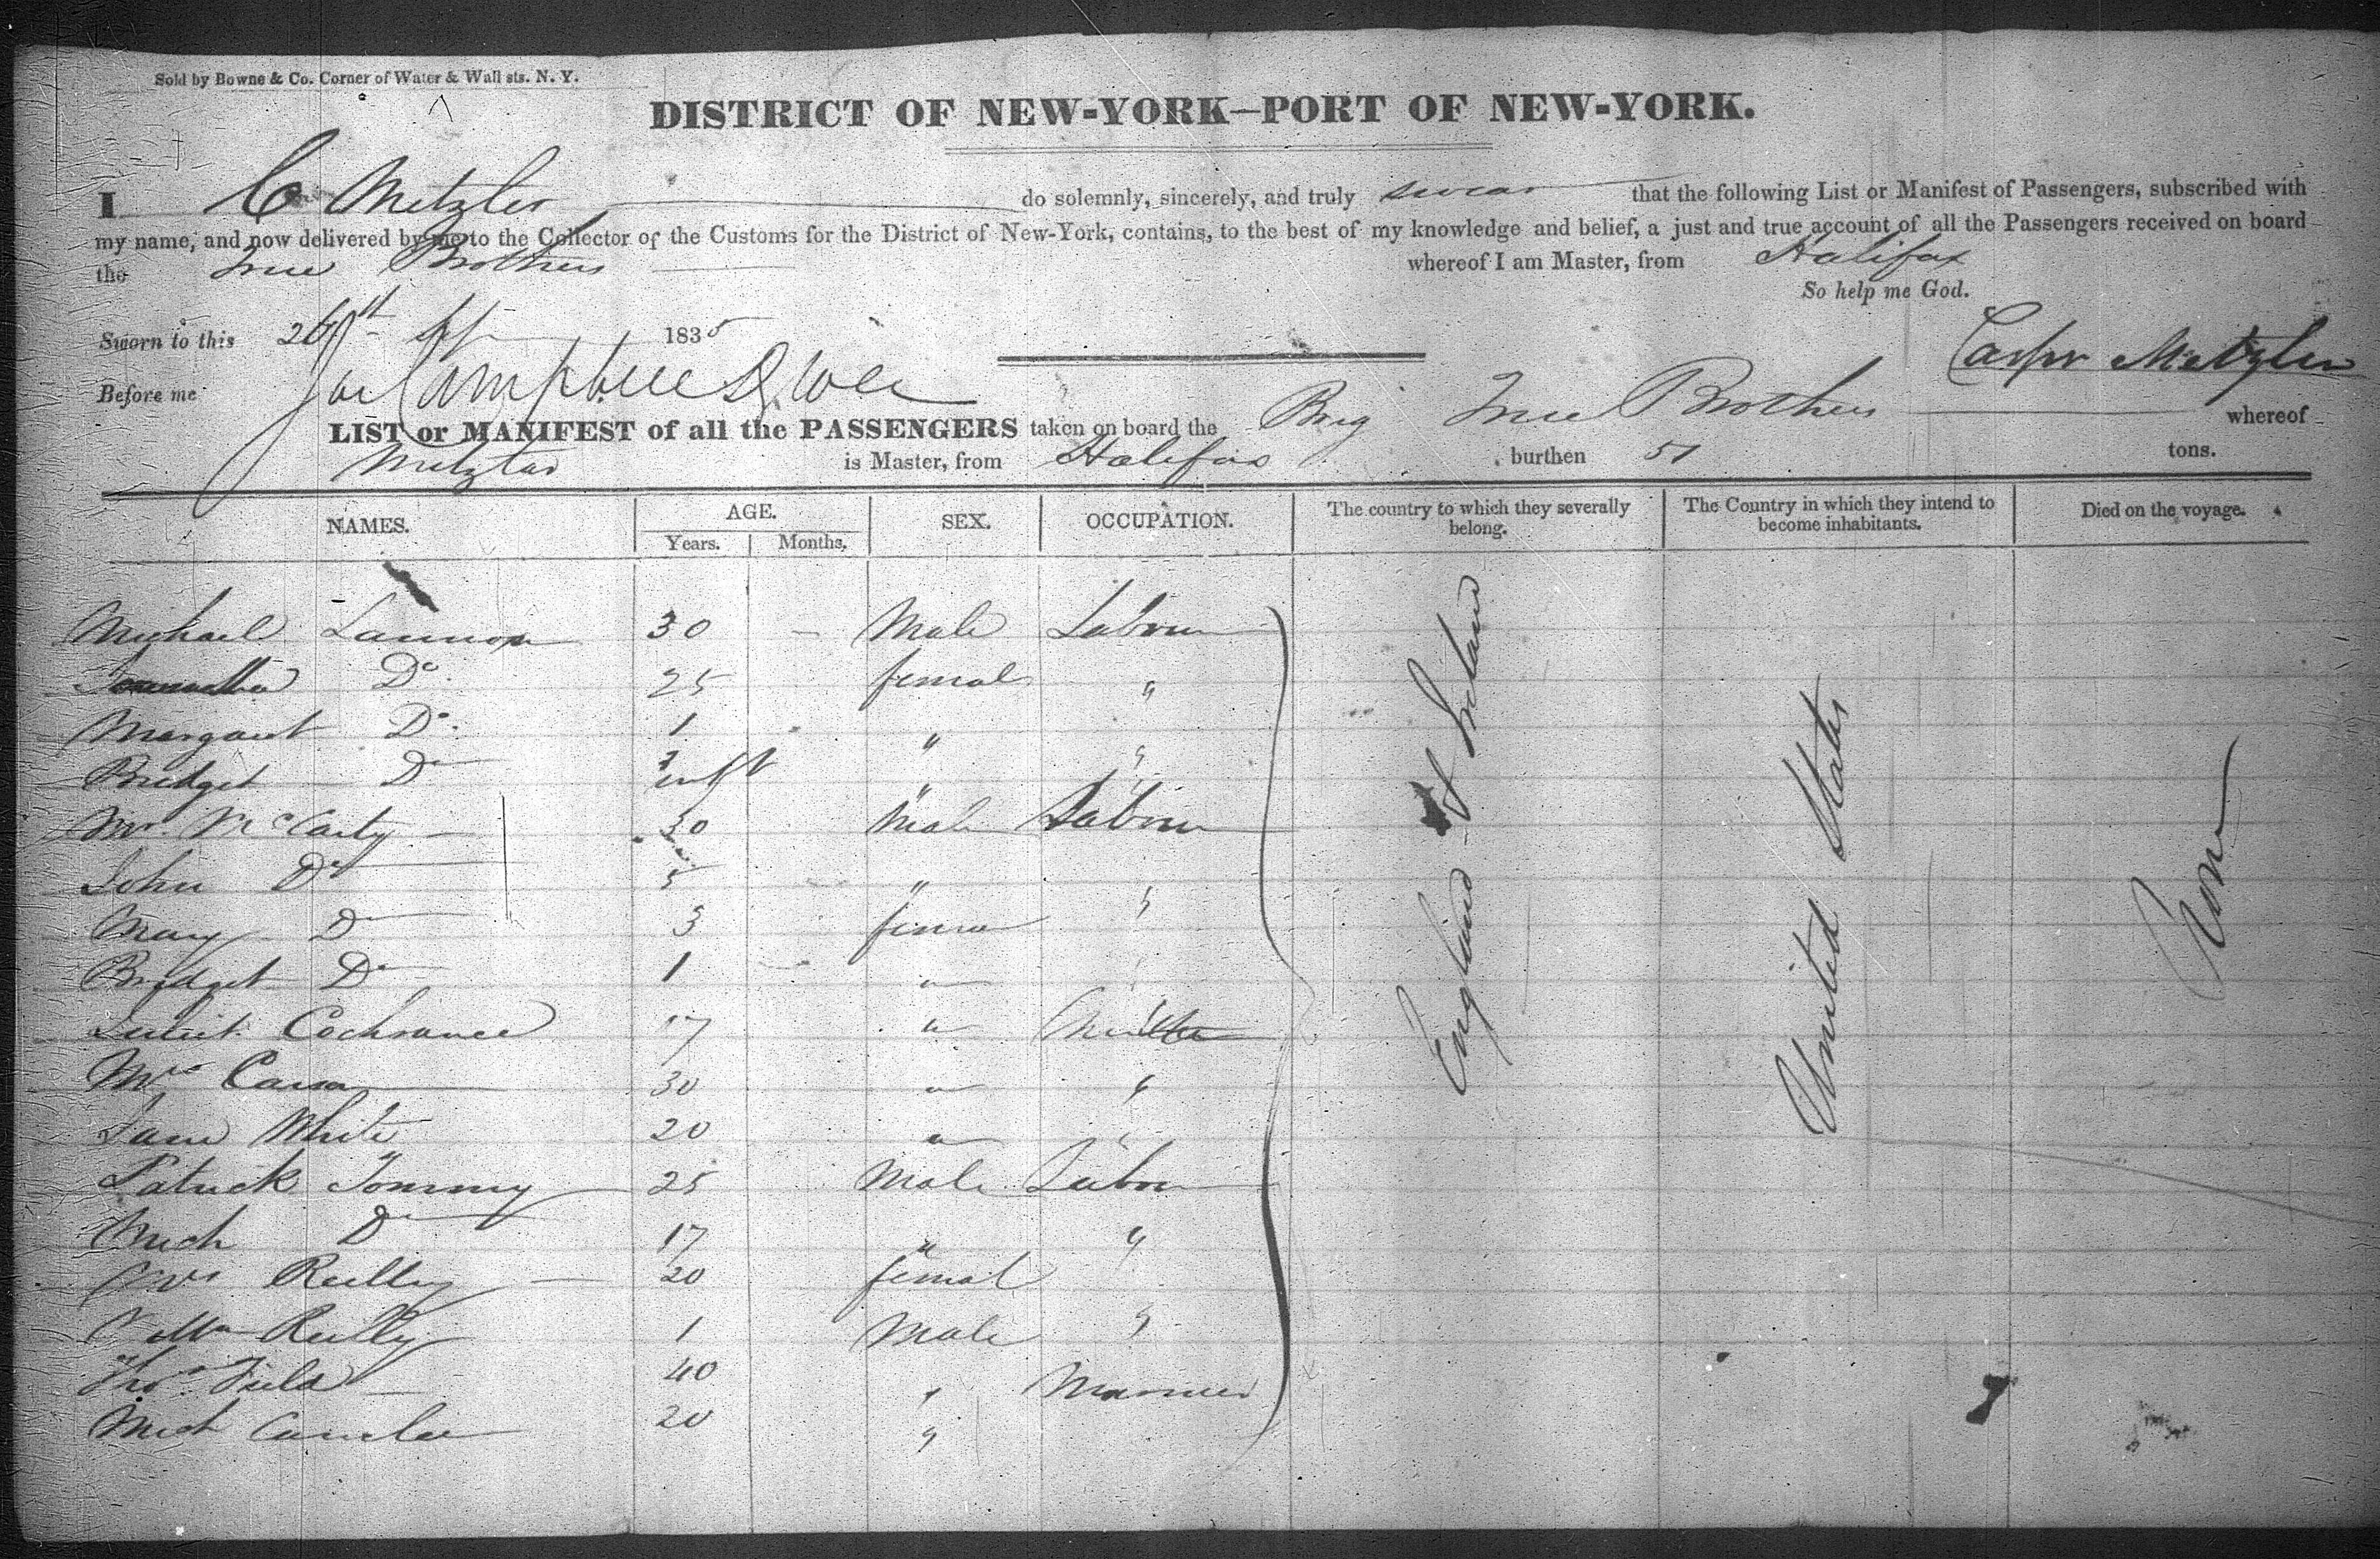 Sold by Bowne & Co. Corner of Water & Wall sts. N. Y.
DISTRICT OF NEW-YORK—PORT OF NEW-YORK.
I C Metzler do solemnly, sincerely, and truly swear that the following List or Manifest of Passengers, subscribed with
my name, and now delivered by me to the Collector of the Customs for the District of New-York, contains, to the best of my knowledge and belief, a just and true account of all the Passengers received on board
the True Brothers whereof I am Master, from Halifax
So help me God.
Sworn to this 26th 1835
Casper Metzler
Before me
LIST or MANIFEST of all the PASSENGERS taken on board the Brig True Brothers whereof
Metzler is Master, from Halifax burthen 51 tons.
NAMES. AGE. SEX. OCCUPATION. The country to which they severally belong. The Country in which they intend to become inhabitants. Died on the voyage.
Years. Months,
Michael 30 Male Labour
Do. 25 femal "
Margaret Do. 1 " "
Bridget Do inft " "
Mr. McCarty 30 Male Labour
John Do 5 " "
Mary Do 3 "
Bridget Do 1 "
Cochrance 17 "
Mrs 30 " "
Jane White 20 " "
Patrick Tommy 25 Male Labour
Mich Do 17 " "
Mrs Reilly 20 femal
Reilly 1 Male "
Thos Field 40 "
Mich 20 "
England & Ireland
United States
None